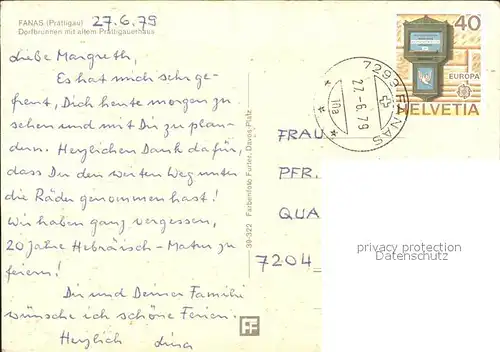 FANAS (Prättigau) 27.6.79
Dorfbrunnen mit altem Prättigauerhaus
Liebe Margreth,
Es hat mich sehr ge-
freut, Dich heute morgen zu
sehen und mit Dir zu plau-
dern. Herzlichen Dank dafür,
dass Du den weiten Weg unter
die Räder genommen hast!
Wir haben ganz vergessen,
20 Jahre Hebräisch-Matur zu
feiern!
Dir und Deiner Familie
wünsche ich schöne Ferien.
Herzlich Lina
39-322 Farbenfoto Furter, Davos-Platz
FF
7299 FANAS
27.-6.79
10a
40
EUROPA
HELVETIA
FRAU
PFR.
QUA
7204
privacy protection
Datenschutz